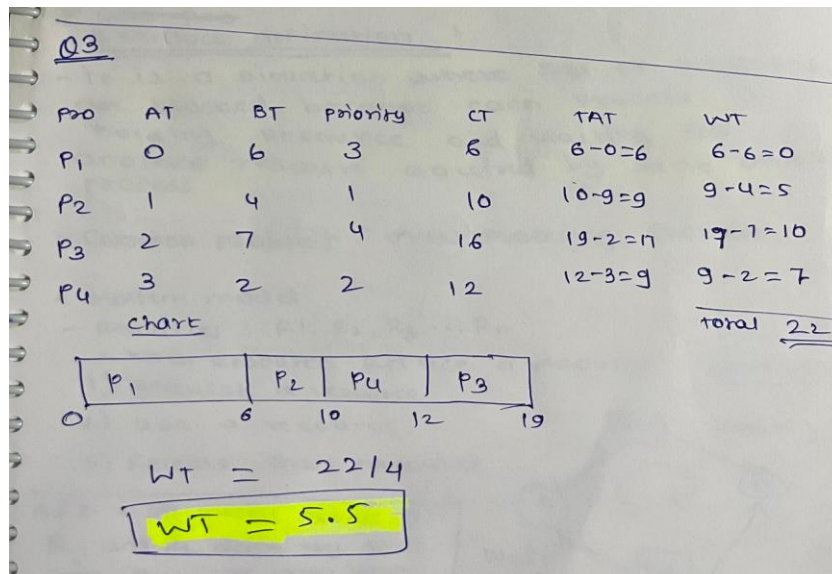 Q3
Pro AT BT Priority CT TAT WT
P1 0 6 3 6 6-0=6 6-6=0
P2 1 4 1 10 10-9=9 9-4=5
P3 2 7 4 16 19-2=17 17-7=10
P4 3 2 2 12 12-3=9 9-2=7
chart
total 22
P1 P2 P4 P3
0 6 10 12 19
WT = 22/4
WT = 5.5